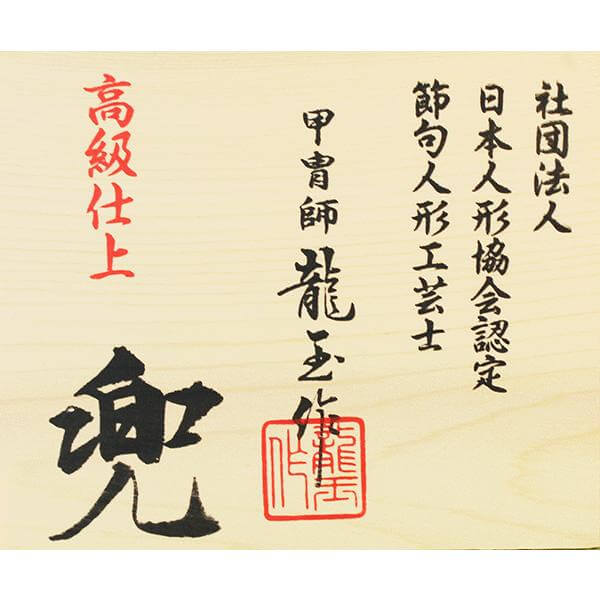 社団法人
日本人形協会認定
節句人形工芸士
甲冑師 龍玉作
龍玉作
高級仕上
兜